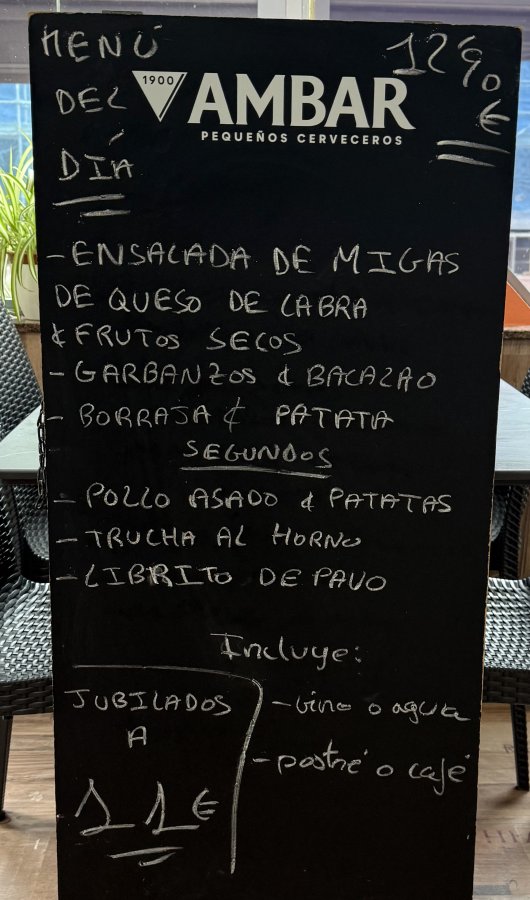 MENÚ
DEL
DÍA
12'90
€
1900
AMBAR
PEQUEÑOS CERVECEROS
- ENSALADA DE MIGAS
DE QUESO DE CABRA
& FRUTOS SECOS
- GARBANZOS & BACALAO
- BORRAJA & PATATA
SEGUNDOS
- POLLO ASADO & PATATAS
- TRUCHA AL HORNO
- LIBRITO DE PAVO
Incluye:
- vino o agua
- postre o café
JUBILADOS
A
11€